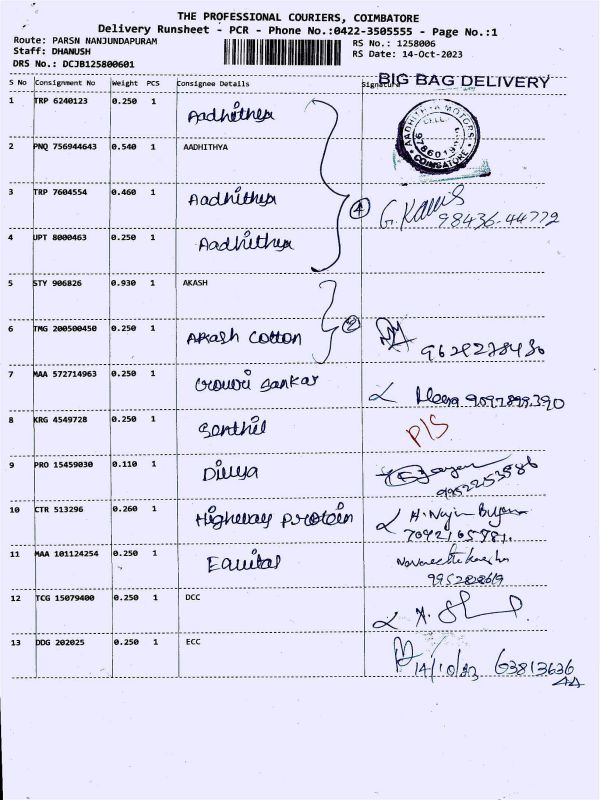 THE PROFESSIONAL COURIERS, COIMBATORE
Delivery Runsheet - PCR - Phone No.:0422-3505555 - Page No.:1
Route: PARSN NANJUNDAPURAM RS No.: 1258006
Staff: DHANUSH RS Date: 14-Oct-2023
DRS No.: DCJB125800601
S No Consignment No Weight PCS Consignee Details Signature BIG BAG DELIVERY
1 TRP 6240123 0.250 1 Aadhithya
AADHITHYA MOTORS
COIMBATORE
2 PNQ 756944643 0.540 1 AADHITHYA
3 TRP 7604554 0.460 1 Aadhithya
4 G. 98436-44772
4 UPT 8000463 0.250 1 Aadhithya
5 STY 906826 0.930 1 AKASH
2
6 TMG 200500450 0.250 1 Akash Cotton
7 MAA 572714963 0.250 1 Gowri Sankar
8 KRG 4549728 0.250 1 Senthil P/S
9 PRO 15459030 0.110 1 Divya
9952253586
10 CTR 513296 0.260 1 Highway Protein
11 MAA 101124254 0.250 1 Equitas
12 TCG 15079400 0.250 1 DCC
13 DDG 202025 0.250 1 ECC
14/10/23 63813636
44